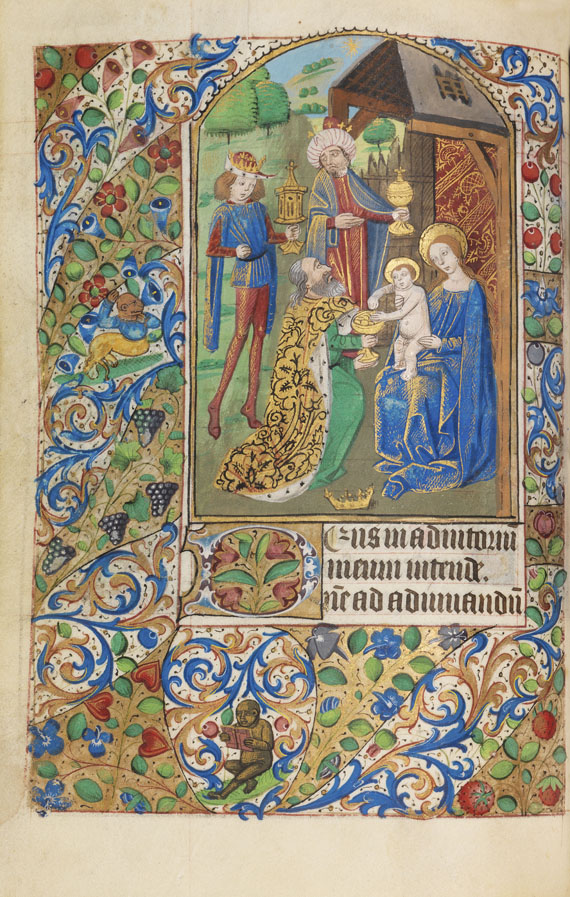 DEus in adiutoriū
meum intende.
Dn̄e ad adiuuandū